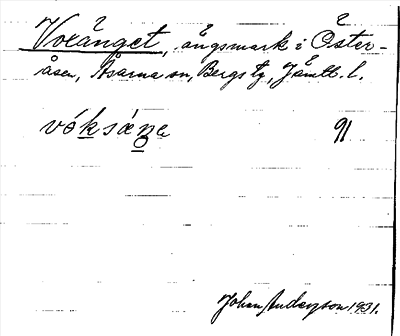 Voxänget, ängsmark i Öster-
åsen, Åsarna sn, Bergs tg, Jämtl. l.
vóksæŋe 91
Johan Anderzson 1931.